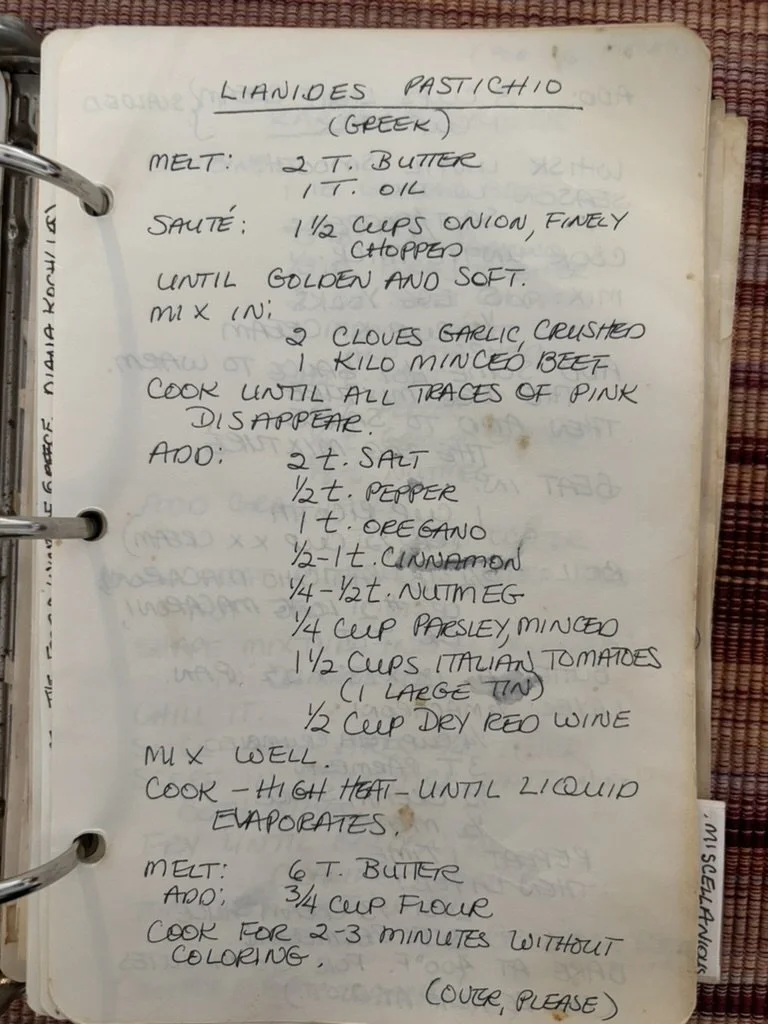 LIANIDES PASTICHIO
(GREEK)
MELT: 2 T. BUTTER
1 T. OIL
SAUTÉ: 1 1/2 CUPS ONION, FINELY
CHOPPED
UNTIL GOLDEN AND SOFT.
MIX IN:
2 CLOVES GARLIC, CRUSHED
1 KILO MINCED BEEF
COOK UNTIL ALL TRACES OF PINK
DISAPPEAR.
ADD: 2 t. SALT
1/2 t. PEPPER
1 t. OREGANO
1/2-1 t. CINNAMON
1/4-1/2 t. NUTMEG
1/4 CUP PARSLEY, MINCED
1 1/2 CUPS ITALIAN TOMATOES
(1 LARGE TIN)
1/2 CUP DRY RED WINE
MIX WELL.
COOK - HIGH HEAT - UNTIL LIQUID
EVAPORATES.
MELT: 6 T. BUTTER
ADD: 3/4 CUP FLOUR
COOK FOR 2-3 MINUTES WITHOUT
COLORING.
(OVER, PLEASE)
MISCELLANIOUS